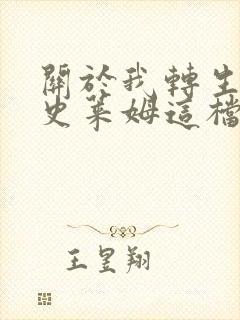 關於我轉生
史萊姆這檔
王昱翔